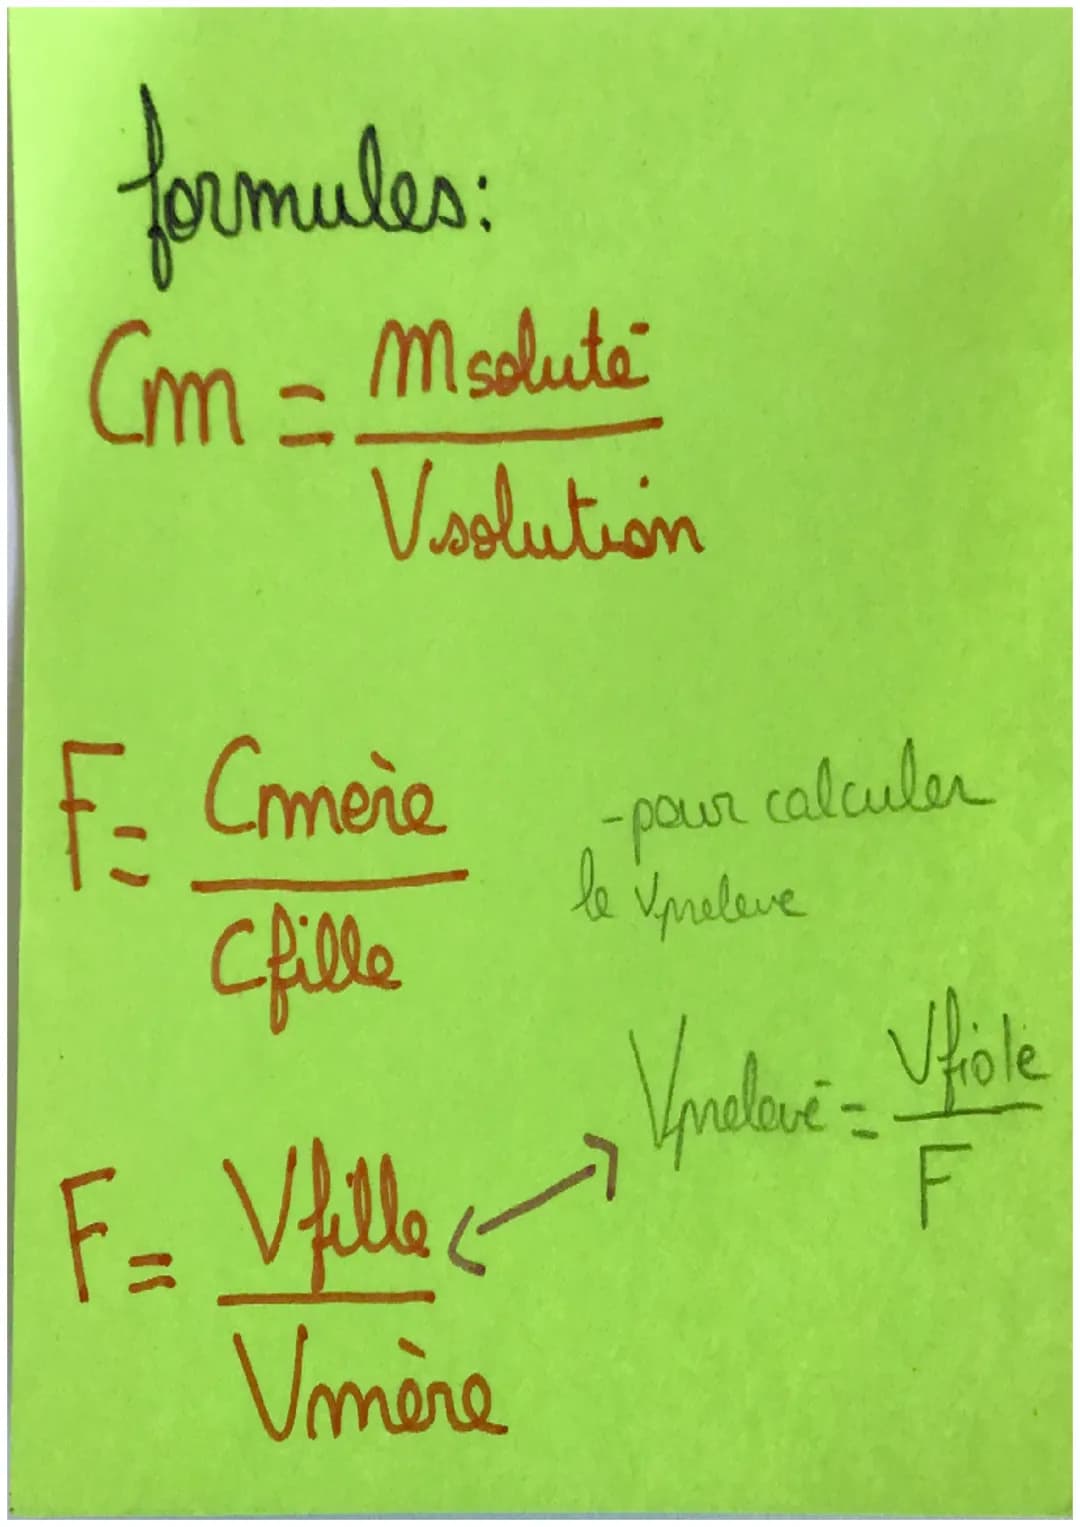 formules:
Cm = msoluté
Vsolution
F = Cmère
Cfille
-pour calculer
le Vpreleve
Vprelevé = Vfiole
F
F = Vfille
Vmère